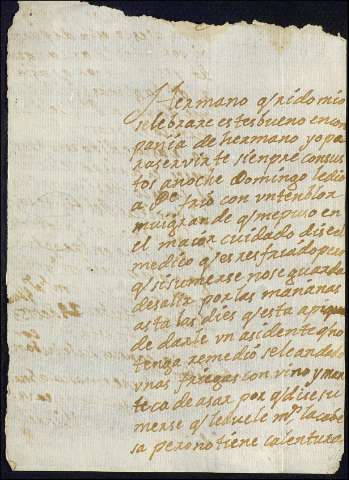 Hermano qrido mio
selebrare estes bueno en con
pania de hermano yo pa
ra servirte sienpre con sus
tos anoche Domingo le dio
a con un tenblor
mui grande q me puso en
el maior cuidado dise el
medico q es resfriado pero
q si su merse no se guarda
de salir por las mañanas
asta las dies q esta a pique
de darle un asidente q no
tenga remedio se le an dado
unas friegas con vino y man
teca de asar por q dise su
merse q le duele la cabe
sa pero no tiene calentura